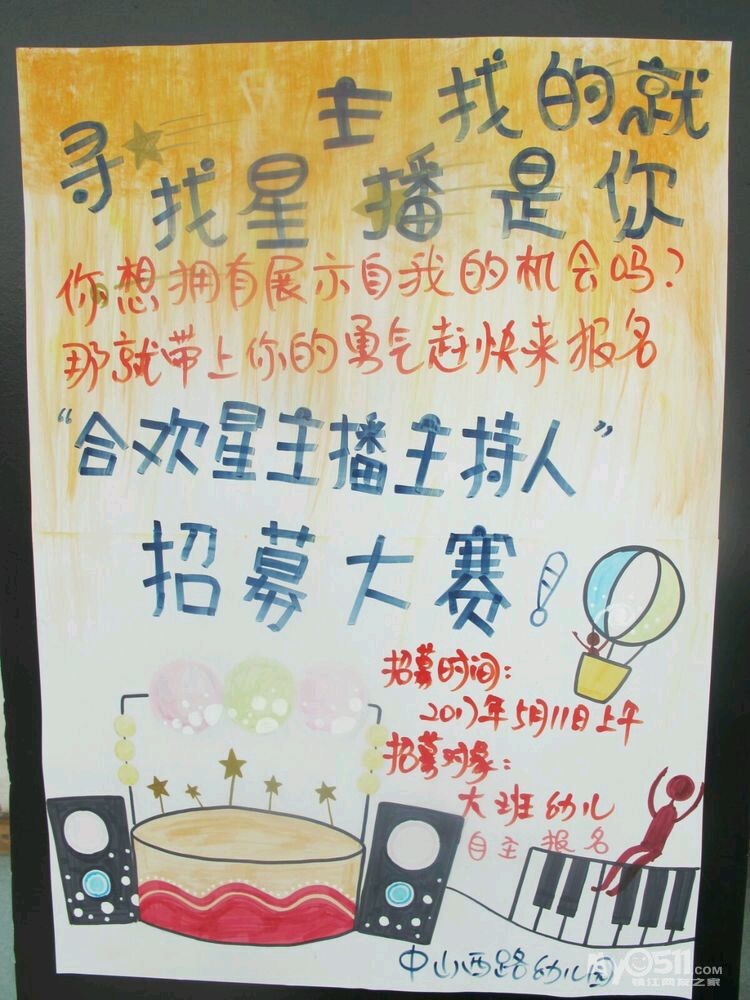 寻找星主播找的就是你
你想拥有展示自我的机会吗？
那就带上你的勇气赶快来报名
“合欢星主播主持人”
招募大赛！
招募时间：
2017年5月11日上午
招募对象：
大班幼儿
自主报名
中山西路幼儿园
my0511.com
镇江网友之家